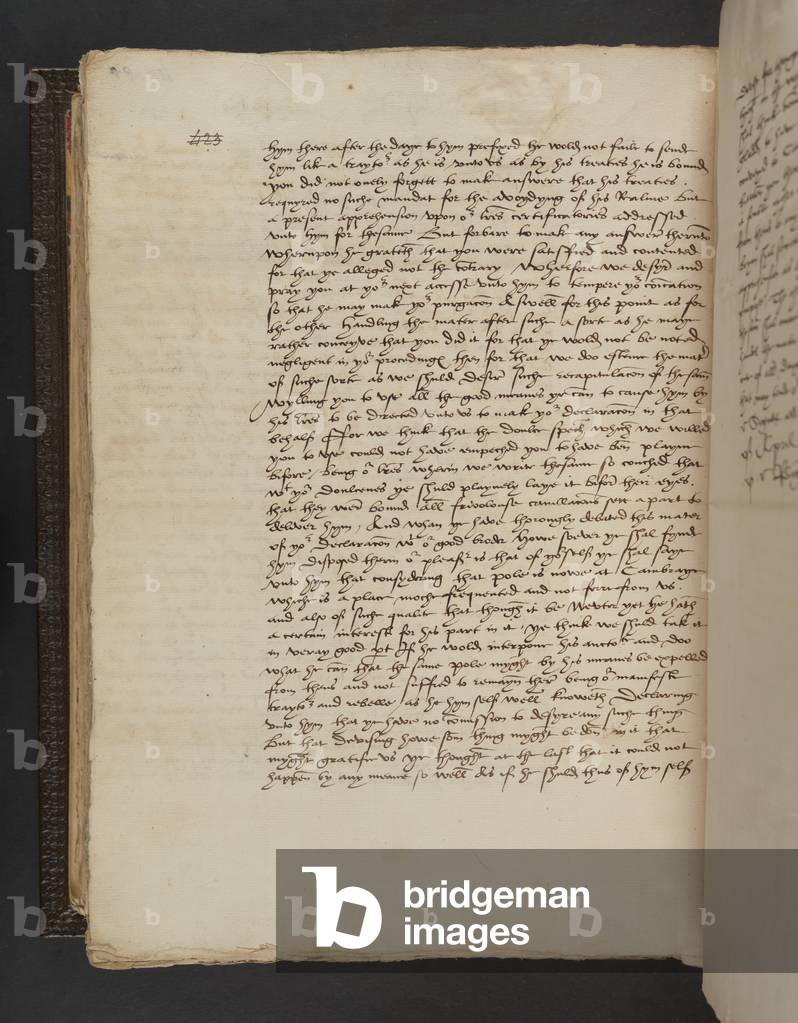 423
hym there after the daye to hym prefixed he wold not faile to sende
hym like a trayto^r as he is unto us as by his treaties he is bounde
you did not onely forgett to make answere that his treaties
requyred no suche mandat for the avoydyng of his Realme but
a present apprehension upon o^r lres certificatories addressed
unto hym for thesame But forbare to make any answer therunto
Wherupon he gratith that you were satisfied and contented
for that ye alleged not the cōtrary Wherfore we desyre and
pray you at yo^r next accesse unto hym to tempere yo^r cōication
so that he may make yo^r purgacōn Aswell for this point as for
the other handling the mater after suche a sorte as he maye
rather conceyve that you did it for that ye wold not be noted
negligent in yo^r procedings then for that we doo esteme the mat
of suche sorte as we shuld desire suche recapitulacōn of thesame
Wylling you to use all the good meanes ye can to cause hym by
his lres to be directed unto us to make yo^r declaracōn in that
behalf ffor we think that the double speche which we willed
you to use could not have empeched you to have ben playne
before being o^r lres wherin we write thesame so couched that
w^t yo^r doulcenes ye shuld playnely laye it before their eyes
that they were bound all frivolouse cavillacōns sett a part to
deliver hym And whan ye have thorougly debated this mater
of yo^r declaracōn w^t o^r good brodr howe soever ye shal fynde
hym disposed therin o^r pleas^r is that of yo^rself ye shal saye
unto hym that consydering that pole is nowe at Cambraye
whiche is a place moche frequented and not ferre from us
and also of suche qualite that though it be newtre yet he hath
a certain interest for his part in it, ye think we shuld take it
in veray good pt if he wold interpone his aucto^te and doo
what he can that the same pole might by his meanes be expelled
from thens and not suffred to remayn there being o^r manifest
trayto^r and rebelle as he hym self well knoweth Declaring
unto hym that ye have no cōmission to desyre any suche thing
But that devising howe som thing myght be don in it that
myght gratifie us ye thought at the last that it could not
happen by any meane so well As if he shuld thus of hym self
bridgeman
images